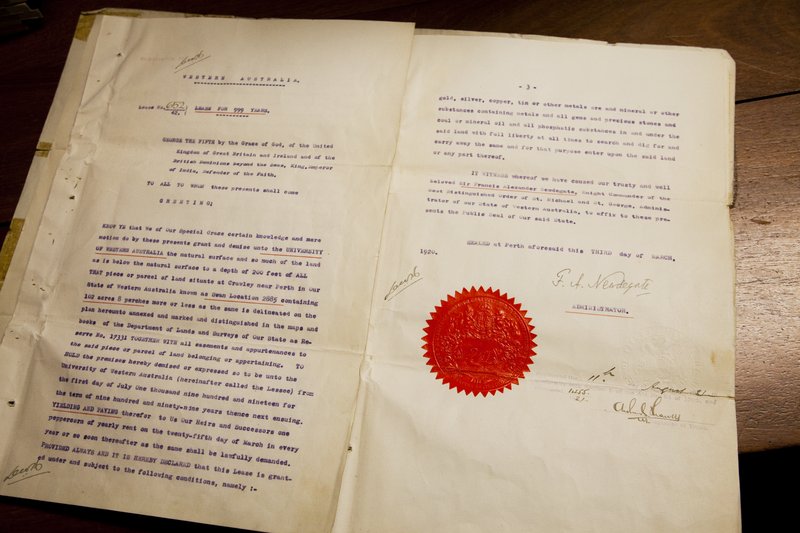 WESTERN AUSTRALIA.
Lease No. 6852/42. LEASE FOR 999 YEARS.
GEORGE THE FIFTH by the Grace of God, of the United
Kingdom of Great Britain and Ireland and of the
British Dominions beyond the Seas, King, Emperor
of India, Defender of the Faith.
TO ALL TO WHOM these presents shall come
GREETING:
KNOW YE that We of Our Special Grace certain knowledge and mere
motion do by these presents grant and demise unto the UNIVERSITY
OF WESTERN AUSTRALIA the natural surface and so much of the land
as is below the natural surface to a depth of 200 feet of ALL
THAT piece or parcel of land situate at Crawley near Perth in Our
State of Western Australia known as Swan Location 2885 containing
102 acres 8 perches more or less as the same is delineated on the
plan hereunto annexed and marked and distinguished in the maps and
books of the Department of Lands and Surveys of Our State as Re-
serve No. 17331 TOGETHER WITH all easements and appurtenances to
the said piece or parcel of land belonging or appertaining. TO
HOLD the premises hereby demised or expressed so to be unto the
University of Western Australia (hereinafter called the Lessee) from
the first day of July One thousand nine hundred and nineteen for
the term of nine hundred and ninety-nine years thence next ensuing.
YIELDING AND PAYING therefor to Us Our Heirs and Successors one
peppercorn of yearly rent on the twenty-fifth day of March in every
year or so soon thereafter as the same shall be lawfully demanded.
PROVIDED ALWAYS AND IT IS HEREBY DECLARED that this Lease is grant-
ed under and subject to the following conditions, namely :-
- 3 -
gold, silver, copper, tin or other metals ore and mineral or other
substances containing metals and all gems and precious stones and
coal or mineral oil and all phosphatic substances in and under the
said land with full liberty at all times to search and dig for and
carry away the same and for that purpose enter upon the said land
or any part thereof.
IN WITNESS whereof we have caused our trusty and well
beloved Sir Francis Alexander Newdegate, Knight Commander of the
most Distinguished Order of St. Michael and St. George, Adminis-
trator of our State of Western Australia, to affix to these pre-
sents the Public Seal of Our said State.
SEALED at Perth aforesaid this THIRD day of MARCH,
1920.
F. A. Newdegate
ADMINISTRATOR.
11th August 21
1055
21.